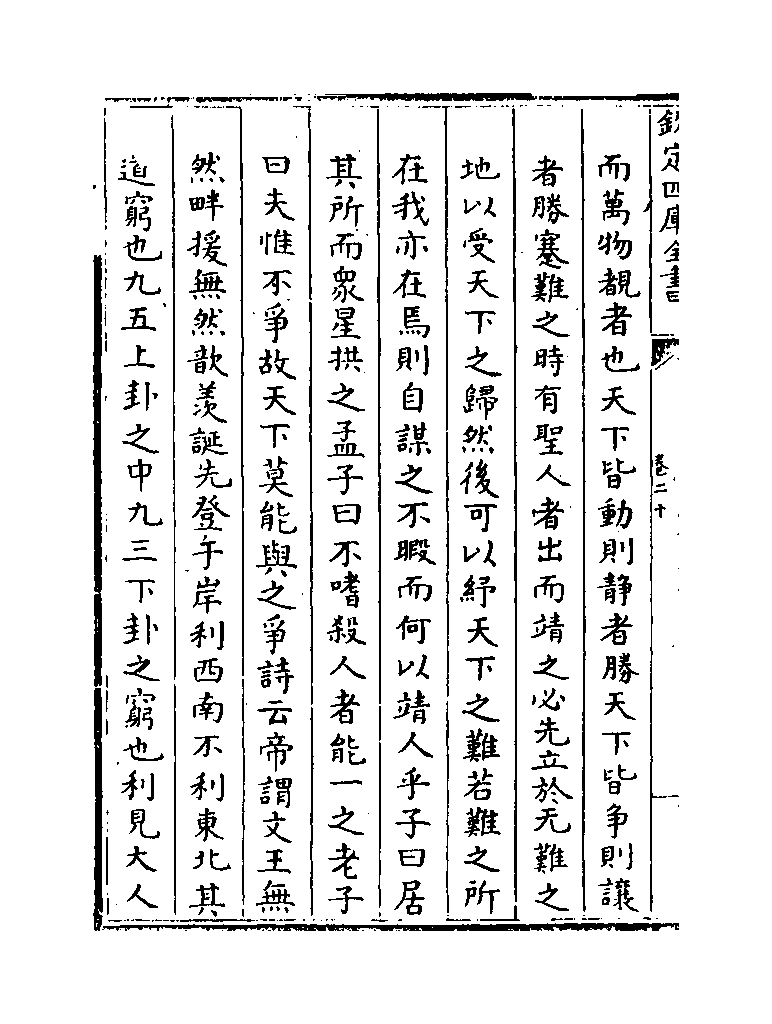 欽定四庫全書
卷二十
而萬物覩者也天下皆動則静者勝天下皆争則讓
者勝蹇難之時有聖人者出而靖之必先立於无難之
地以受天下之歸然後可以紓天下之難若難之所
在我亦在焉則自謀之不暇而何以靖人乎子曰居
其所而衆星拱之孟子曰不嗜殺人者能一之老子
曰夫惟不爭故天下莫能與之爭詩云帝謂文王無
然畔援無然歆羡誕先登于岸利西南不利東北其
道窮也九五上卦之中九三下卦之窮也利見大人